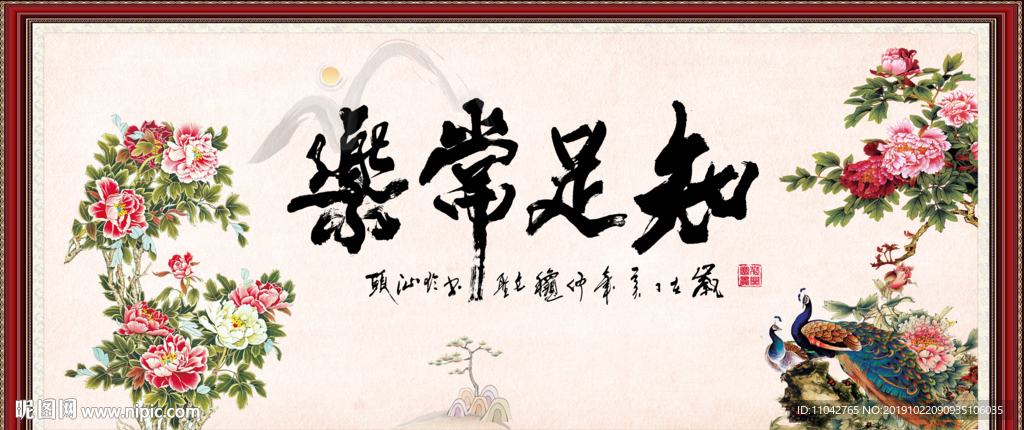 知足常樂
年仲龝書於汕頭
昵图网 www.nipic.com
ID:11042765 NO:20191022090935106035